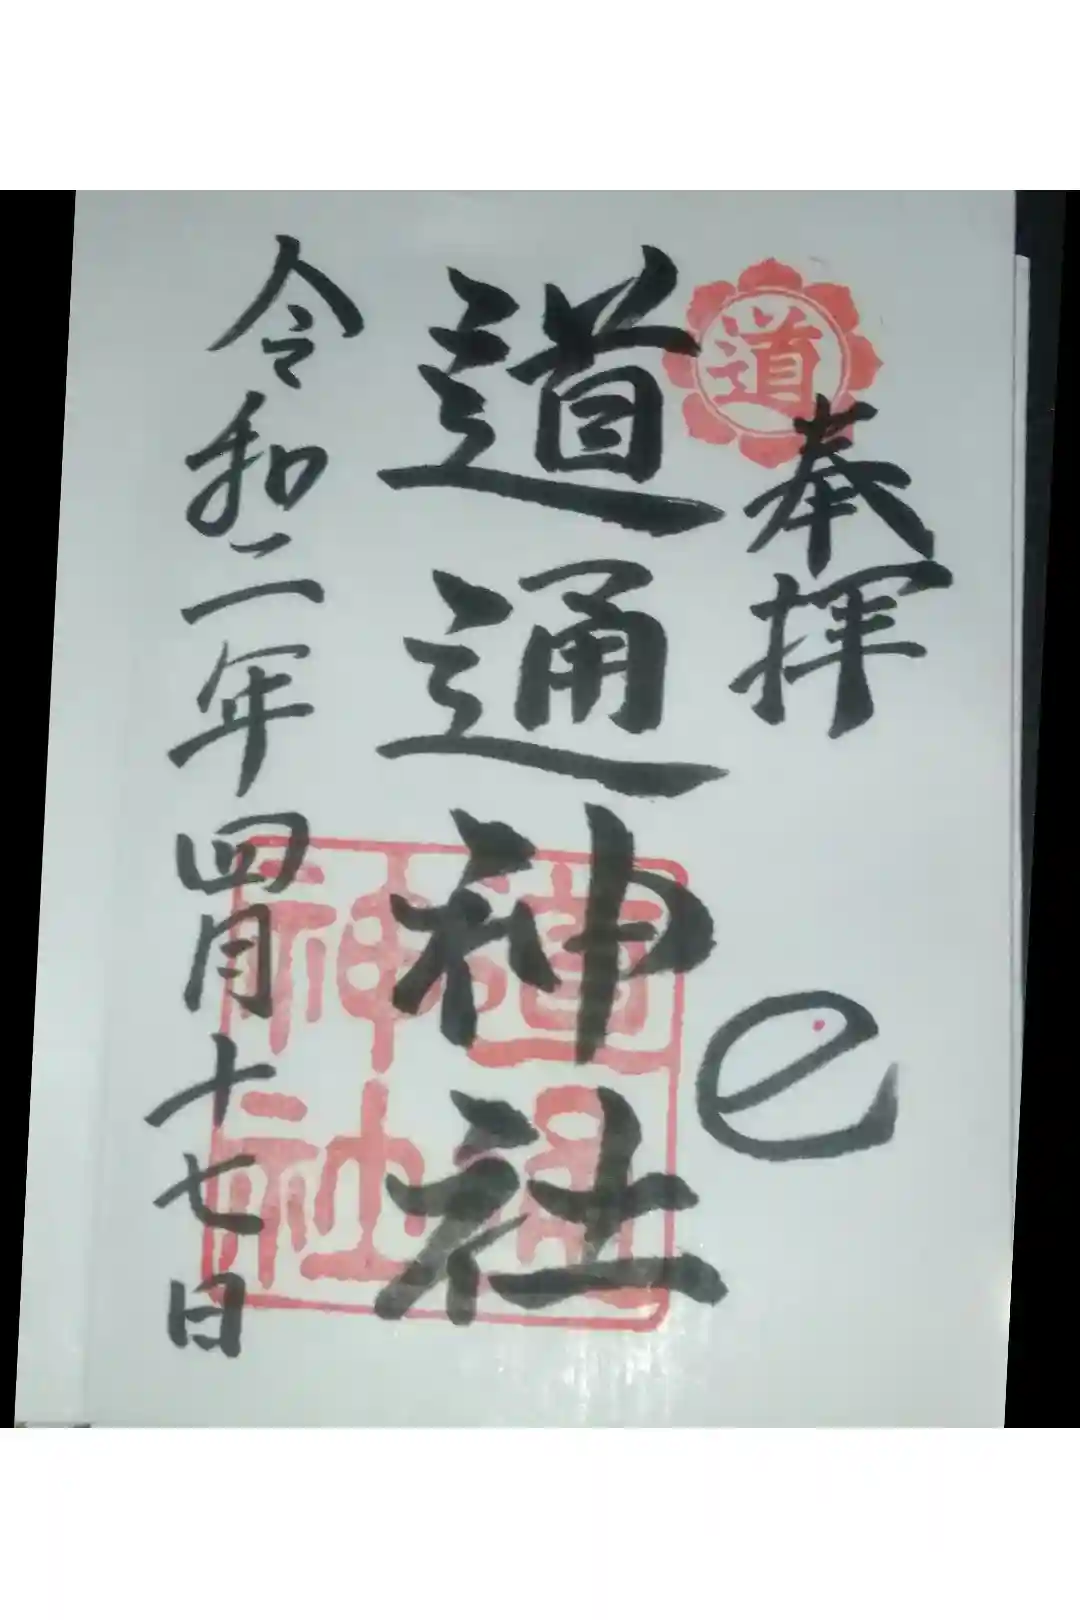 道
奉拝
道通神社
道通神社
令和二年四月十七日